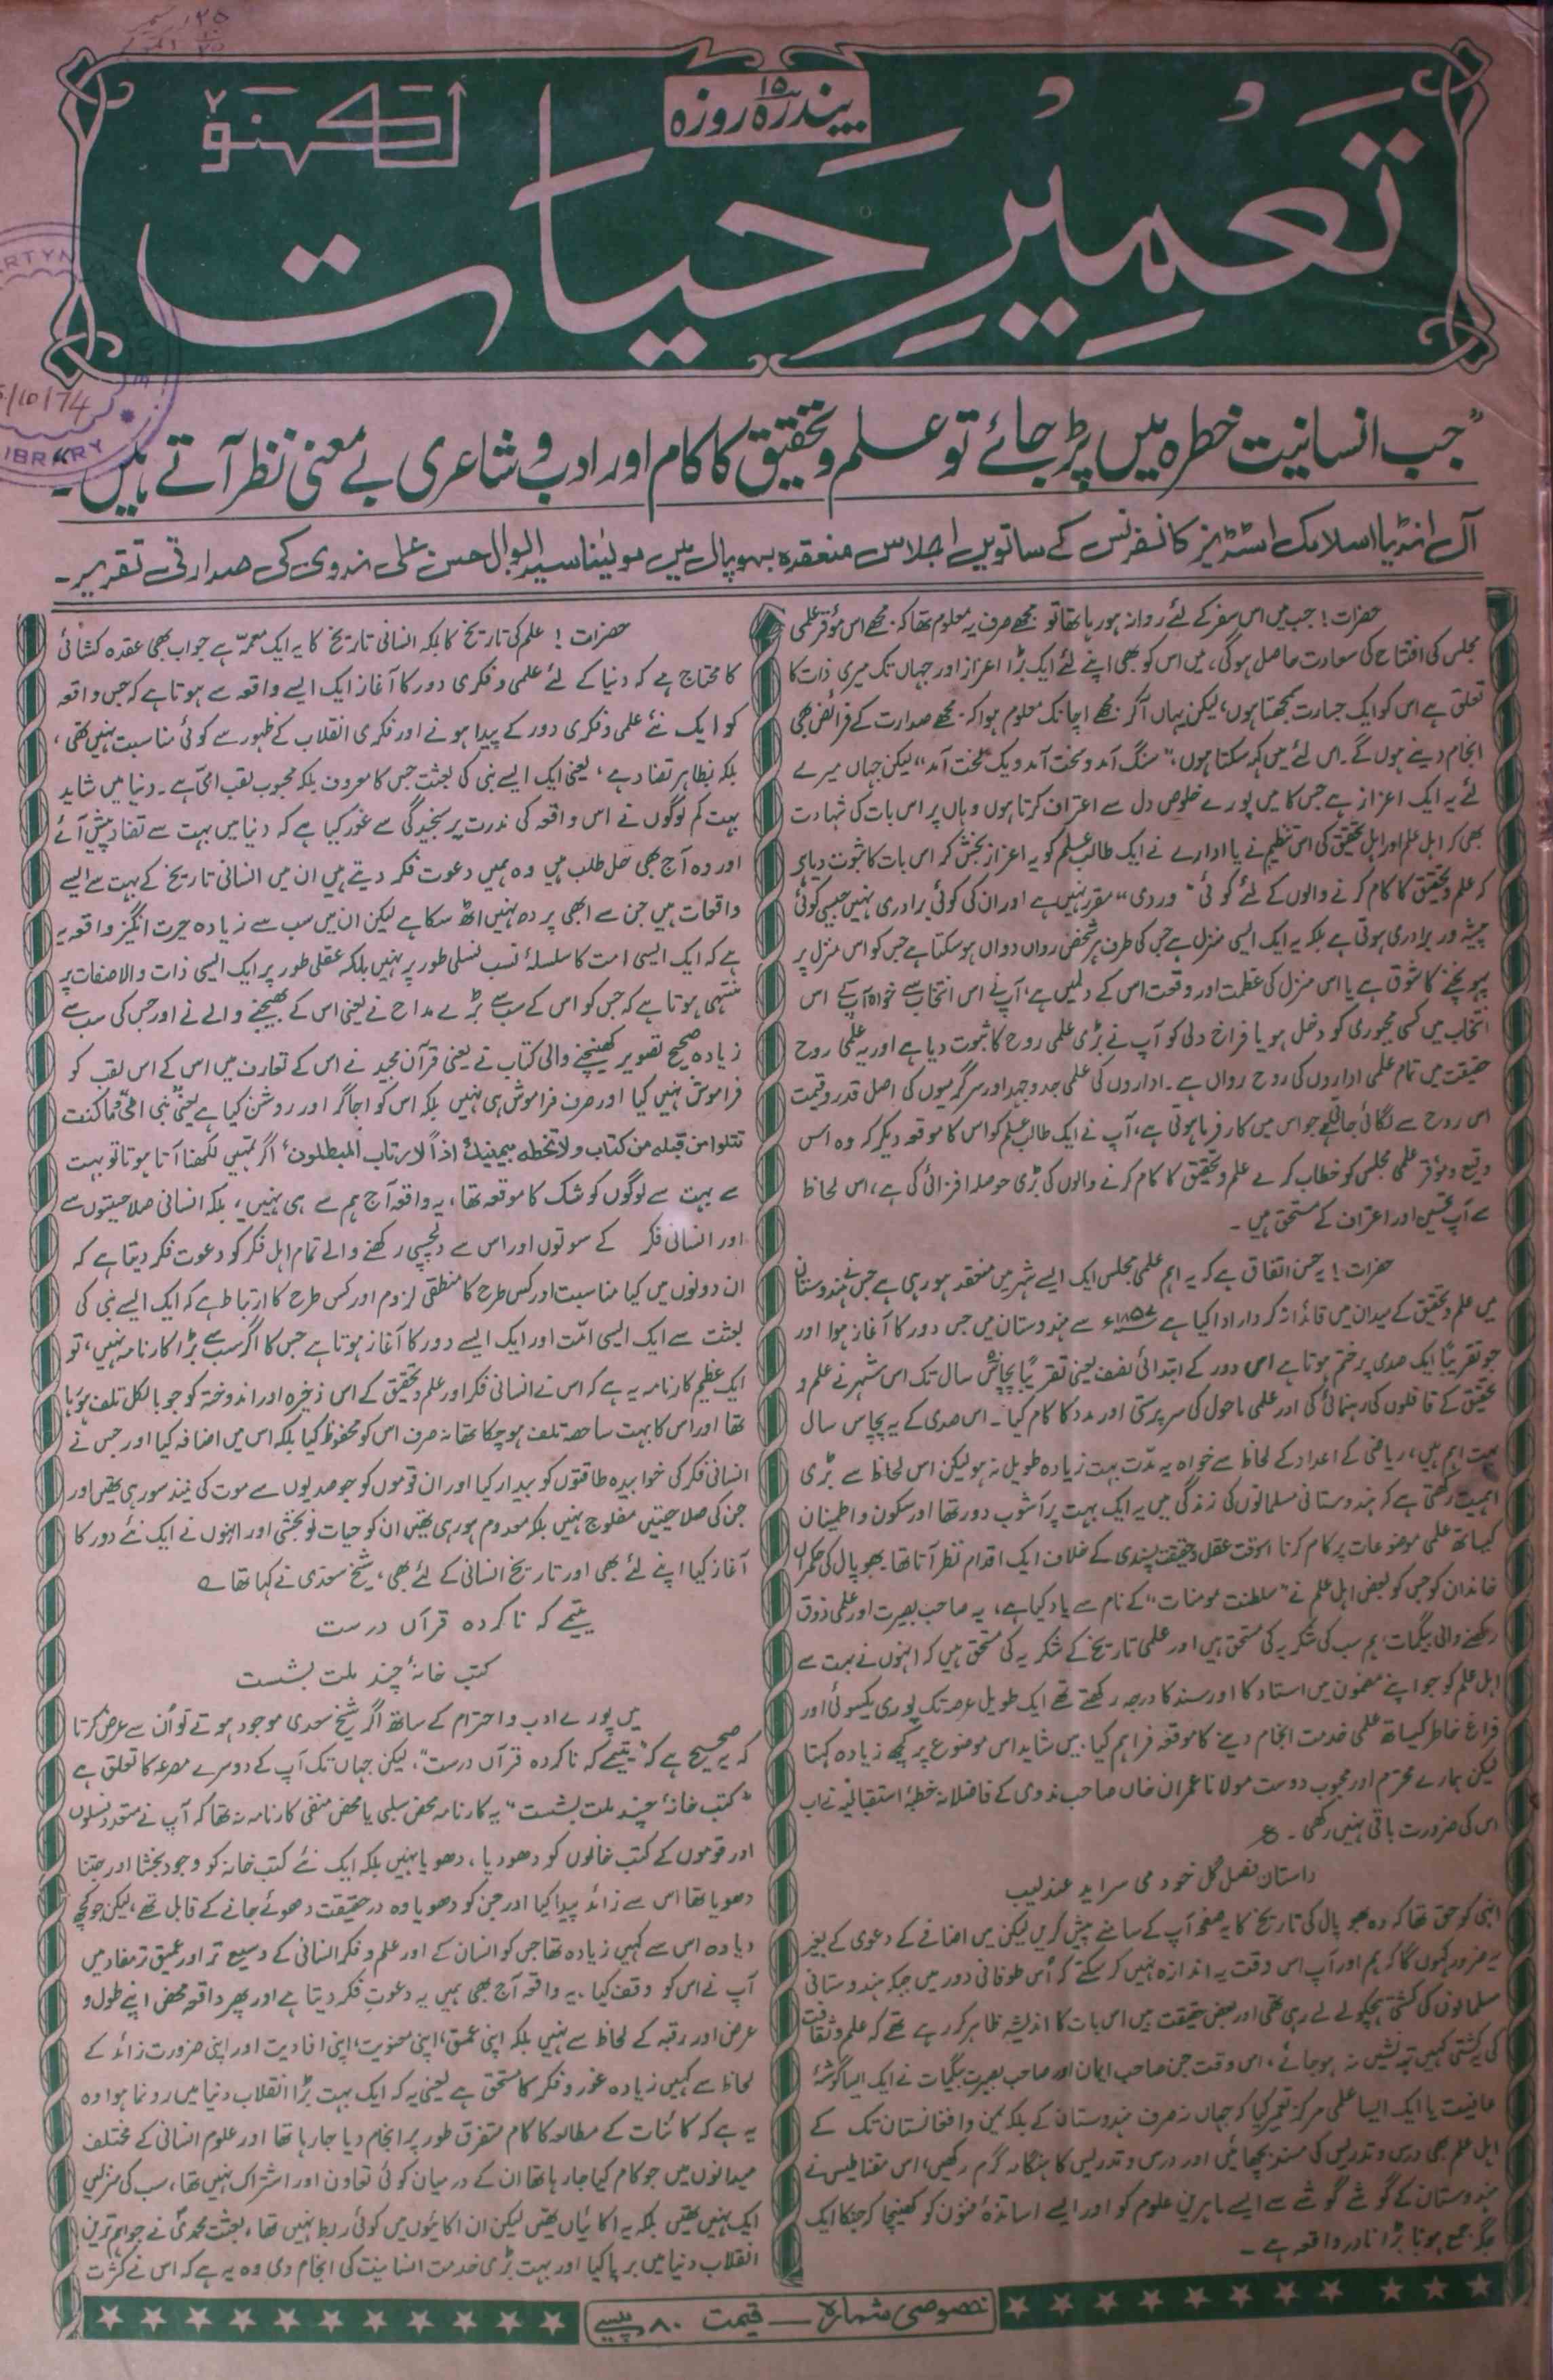 ۲۵ دسمبر
۱۰ اکتوبر
پندرہ ۱۵ روزہ
لکھنؤ
تعمیرِ حیات
"جب انسانیت خطرہ میں پڑ جائے تو علم و تحقیق کا کام اور ادب و شاعری بے معنی نظر آتے ہیں۔
آل انڈیا اسلامک اسٹڈیز کانفرنس کے ساتویں اجلاس منعقدہ بھوپال میں مولینا سید ابوالحسن علی ندوی کی صدارتی تقریر۔
حضرات! جب میں اس سفر کے لئے روانہ ہو رہا تھا تو مجھے صرف یہ معلوم تھا کہ مجھے اس مؤقر علمی
مجلس کی افتتاح کی سعادت حاصل ہوگی، میں اس کو بھی اپنے لئے ایک بڑا اعزاز اور جہاں تک میری ذات کا
تعلق ہے اس کو ایک جسارت سمجھتا ہوں، لیکن یہاں آکر مجھے اچانک معلوم ہوا کہ مجھے صدارت کے فرائض بھی
انجام دینے ہوں گے۔ اس لئے میں کہہ سکتا ہوں، "سنگ آمد و سخت آمد و یک لخت آمد" لیکن جہاں میرے
لئے یہ ایک اعزاز ہے جس کا میں پورے خلوص دل سے اعتراف کرتا ہوں وہاں پر اس بات کی شہادت
بھی کہ اہل علم اور اہل تحقیق کی اس تنظیم نے یا ادارے نے ایک طالب علم کو یہ اعزاز بخش کر اس بات کا ثبوت دیا ہے
کہ علم و تحقیق کا کام کرنے والوں کے لئے کوئی "وردی" مقرر نہیں ہے اور ان کی کوئی برادری نہیں جیسی کوئی
پیشہ ور برادری ہوتی ہے بلکہ یہ ایک ایسی منزل ہے جس کی طرف ہر شخص رواں دواں ہو سکتا ہے جس کو اس منزل پر
پہونچنے کا شوق ہے یا اس منزل کی عظمت اور وقعت اس کے دل میں ہے، آپ نے اس انتخاب سے خواہ آپ کے اس
انتخاب میں کسی مجبوری کو دخل ہو یا فراخ دلی کو آپ نے بڑی علمی روح کا ثبوت دیا ہے اور یہ علمی روح
حقیقت میں تمام علمی اداروں کی روح رواں ہے۔ اداروں کی علمی جد و جہد اور سرگرمیوں کی اصل قدر و قیمت
اس روح سے لگائی جاتی ہے جو اس میں کارفرما ہوتی ہے، آپ نے ایک طالب علم کو اس کا موقعہ دیکر کہ وہ اس
وقیع و مؤقر علمی مجلس کو خطاب کرے علم و تحقیق کا کام کرنے والوں کی بڑی حوصلہ افزائی کی ہے، اس لحاظ
سے آپ تحسین اور اعتراف کے مستحق ہیں۔
حضرات! یہ حسن اتفاق ہے کہ یہ اہم علمی مجلس ایک ایسے شہر میں منعقد ہو رہی ہے جس نے ہندوستان
میں علم و تحقیق کے میدان میں قائدانہ کردار ادا کیا ہے ۱۸۵۷ء سے ہندوستان میں جس دور کا آغاز ہوا اور
جو تقریباً ایک صدی پر ختم ہوتا ہے اس دور کے ابتدائی نصف یعنی تقریباً پچاس سال تک اس شہر نے علم و
تحقیق کے قافلوں کی رہنمائی کی اور علمی ماحول کی سرپرستی اور مدد کا کام کیا۔ اس صدی کے یہ پچاس سال
بہت اہم ہیں، ریاضی کے اعداد کے لحاظ سے خواہ یہ مدّت بہت زیادہ طویل نہ ہو لیکن اس لحاظ سے بڑی
اہمیت رکھتی ہے کہ ہندوستانی مسلمانوں کی زندگی میں یہ ایک بہت پر آشوب دور تھا اور سکون و اطمینان
کیساتھ علمی موضوعات پر کام کرنا اسوقت عقل و حقیقت پسندی کے خلاف ایک اقدام نظر آتا تھا۔ بھوپال کی حکمراں
خاندان کو جس کو بعض اہل علم نے "سلطنت مومنات" کے نام سے یاد کیا ہے، یہ صاحب بصیرت اور علمی ذوق
رکھنے والی بیگمات ہم سب کی شکریہ کی مستحق ہیں اور علمی تاریخ کے شکریہ کی مستحق ہیں کہ انہوں نے بہت سے
اہل علم کو جو اپنے مضمون میں استاد کا اور سند کا درجہ رکھتے تھے ایک طویل عرصہ تک پوری یکسوئی اور
فراغ خاطر کیساتھ علمی خدمت انجام دینے کا موقعہ فراہم کیا، میں شاید اس موضوع پر کچھ زیادہ کہتا
لیکن ہمارے محترم اور محبوب دوست مولانا عمران خاں صاحب ندوی کے فاضلانہ خطبۂ استقبالیہ نے اب
اس کی ضرورت باقی نہیں رکھی۔ ع
داستان فصل گل خود می سراید عندلیب
انہی کو حق تھا کہ وہ بھوپال کی تاریخ کا یہ صفحہ آپ کے سامنے پیش کریں لیکن میں اضافے کے دعوی کے بغیر
یہ ضرور کہوں گا کہ ہم اور آپ اس وقت یہ اندازہ نہیں کر سکتے کہ اُس طوفانی دور میں جبکہ ہندوستانی
مسلمانوں کی کشتی ہچکولے لے رہی تھی اور بعض حقیقت بیں اس بات کا اندیشہ ظاہر کر رہے تھے کہ علم و ثقافت
کی یہ کشتی کہیں تہہ نشیں نہ ہو جائے، اس وقت جن صاحب ایمان اور صاحب بصیرت بیگمات نے ایک ایسا گوشۂ
عافیت یا ایک ایسا علمی مرکز تعمیر کیا کہ جہاں نہ صرف ہندوستان کے بلکہ یمن و افغانستان تک کے
اہل علم بھی درس و تدریس کی مسند بچھائیں اور درس و تدریس کا ہنگامہ گرم رکھیں، اس مقناطیس نے
ہندوستان کے گوشے گوشے سے ایسے ماہرین علوم کو اور ایسے اساتذۂ فنون کو کھینچا کہ جنکا ایک
جگہ جمع ہونا بڑا نادر واقعہ ہے۔
حضرات! علم کی تاریخ کا بلکہ انسانی تاریخ کا یہ ایک معمّہ ہے جو اب بھی عقدہ کشائی
کا محتاج ہے کہ دنیا کے لئے علمی و فکری دور کا آغاز ایک ایسے واقعہ سے ہوتا ہے کہ جس واقعہ
کو ایک نئے علمی و فکری دور کے پیدا ہونے اور فکری انقلاب کے ظہور سے کوئی مناسبت نہیں تھی،
بلکہ بظاہر تضاد ہے، یعنی ایک ایسے نبی کی بعثت جس کا معروف بلکہ محبوب لقب امّی ہے۔ دنیا میں شاید
بہت کم لوگوں نے اس واقعہ کی ندرت پر سنجیدگی سے غور کیا ہے کہ دنیا میں بہت سے تضاد پیش آئے
اور وہ آج بھی حل طلب ہیں وہ ہمیں دعوت فکر دیتے ہیں ان میں انسانی تاریخ کے بہت سے ایسے
واقعات ہیں جن سے ابھی پردہ نہیں اٹھ سکا ہے لیکن ان میں سب سے زیادہ حیرت انگیز واقعہ یہ
ہے کہ ایک ایسی امت کا سلسلۂ نسب نسلی طور پر نہیں بلکہ عقلی طور پر ایک ایسی ذات والا صفات پر
منتہی ہوتا ہے کہ جس کو اس کے سب سے بڑے مداح نے یعنی اس کے بھیجنے والے نے اور جس کی سب سے
زیادہ صحیح تصویر کھینچنے والی کتاب نے یعنی قرآن مجید نے اس کے تعارف میں اس کے اس لقب کو
فراموش نہیں کیا اور صرف فراموش ہی نہیں بلکہ اس کو اجاگر اور روشن کیا ہے یعنی "نبی امی" وما کنت
تتلوا من قبلہ من کتاب ولا تخطہ بیمینک اذاً لارتاب المبطلون، اگر تمہیں لکھنا آتا ہوتا تو بہت
سے بہت سے لوگوں کو شک کا موقعہ تھا، یہ واقعہ آج ہم سے ہی نہیں، بلکہ انسانی صلاحیتوں سے
اور انسانی فکر کے سوتوں اور اس سے دلچسپی رکھنے والے تمام اہل فکر کو دعوت فکر دیتا ہے کہ
ان دونوں میں کیا مناسبت اور کس طرح کا منطقی لزوم اور کس طرح کا ارتباط ہے کہ ایک ایسے نبی کی
بعثت سے ایک ایسی امّت اور ایک ایسے دور کا آغاز ہوتا ہے جس کا اگر سب سے بڑا کارنامہ نہیں، تو
ایک عظیم کارنامہ یہ ہے کہ اس نے انسانی فکر اور علم و تحقیق کے اس ذخیرہ اور اندوختہ کو جو بالکل تلف ہو رہا
تھا اور اس کا بہت سا حصہ تلف ہو چکا تھا نہ صرف اس کو محفوظ کیا بلکہ اس میں اضافہ کیا اور جس نے
انسانی فکر کی خوابیدہ طاقتوں کو بیدار کیا اور ان قوموں کو جو صدیوں سے موت کی نیند سو رہی تھیں اور
جن کی صلاحیتیں مفلوج نہیں بلکہ معدوم ہو رہی تھیں ان کو حیات نو بخشی اور انہوں نے ایک نئے دور کا
آغاز کیا اپنے لئے بھی اور تاریخ انسانی کے لئے بھی، شیخ سعدی نے کہا تھا ؎
یتیمے کہ ناکردہ قرآں درست
کتب خانۂ چند ملت بشست
میں پورے ادب و احترام کے ساتھ اگر شیخ سعدی موجود ہوتے تو اُن سے عرض کرتا
کہ یہ صحیح ہے کہ "یتیمے کہ ناکردہ قرآں درست"، لیکن جہاں تک آپ کے دوسرے مصرعہ کا تعلق ہے
"کتب خانۂ چند ملت بشست" یہ کارنامہ محض سلبی یا محض منفی کارنامہ نہ تھا کہ آپ نے متعدد نسلوں
اور قوموں کے کتب خانوں کو دھو دیا، دھویا نہیں بلکہ ایک نئے کتب خانہ کو وجود بخشا اور جتنا
دھویا تھا اس سے زائد پیدا کیا اور جن کو دھویا وہ درحقیقت دھوئے جانے کے قابل تھے، لیکن جو کچھ
دیا وہ اس سے کہیں زیادہ تھا جس کو انسان کے اور علم و فکر انسانی کے وسیع تر اور عمیق تر مفاد میں
آپ نے اس کو وقف کیا۔ یہ واقعہ آج بھی ہمیں یہ دعوتِ فکر دیتا ہے اور پھر واقعہ محض اپنے طول و
عرض اور رقبہ کے لحاظ سے نہیں بلکہ اپنی عمق، اپنی معنویت، اپنی افادیت اور اپنی ضرورت زائد کے
لحاظ سے کہیں زیادہ غور و فکر کا مستحق ہے یعنی یہ کہ ایک بہت بڑا انقلاب دنیا میں رونما ہوا وہ
یہ ہے کہ کائنات کے مطالعہ کا کام متفرق طور پر انجام دیا جا رہا تھا اور علوم انسانی کے مختلف
میدانوں میں جو کام کیا جا رہا تھا ان کے درمیان کوئی تعاون اور اشتراک نہیں تھا، سب کی منزلیں
ایک نہیں تھیں بلکہ یہ اکائیاں تھیں لیکن ان اکائیوں میں کوئی ربط نہیں تھا، بعثت محمدیؐ نے جو اہم ترین
انقلاب دنیا میں برپا کیا اور بہت بڑی خدمت انسانیت کی انجام دی وہ یہ ہے کہ اس نے کثرت
خصوصی شمارہ — قیمت ۸۰ پیسے
/10/74
LIBRARY